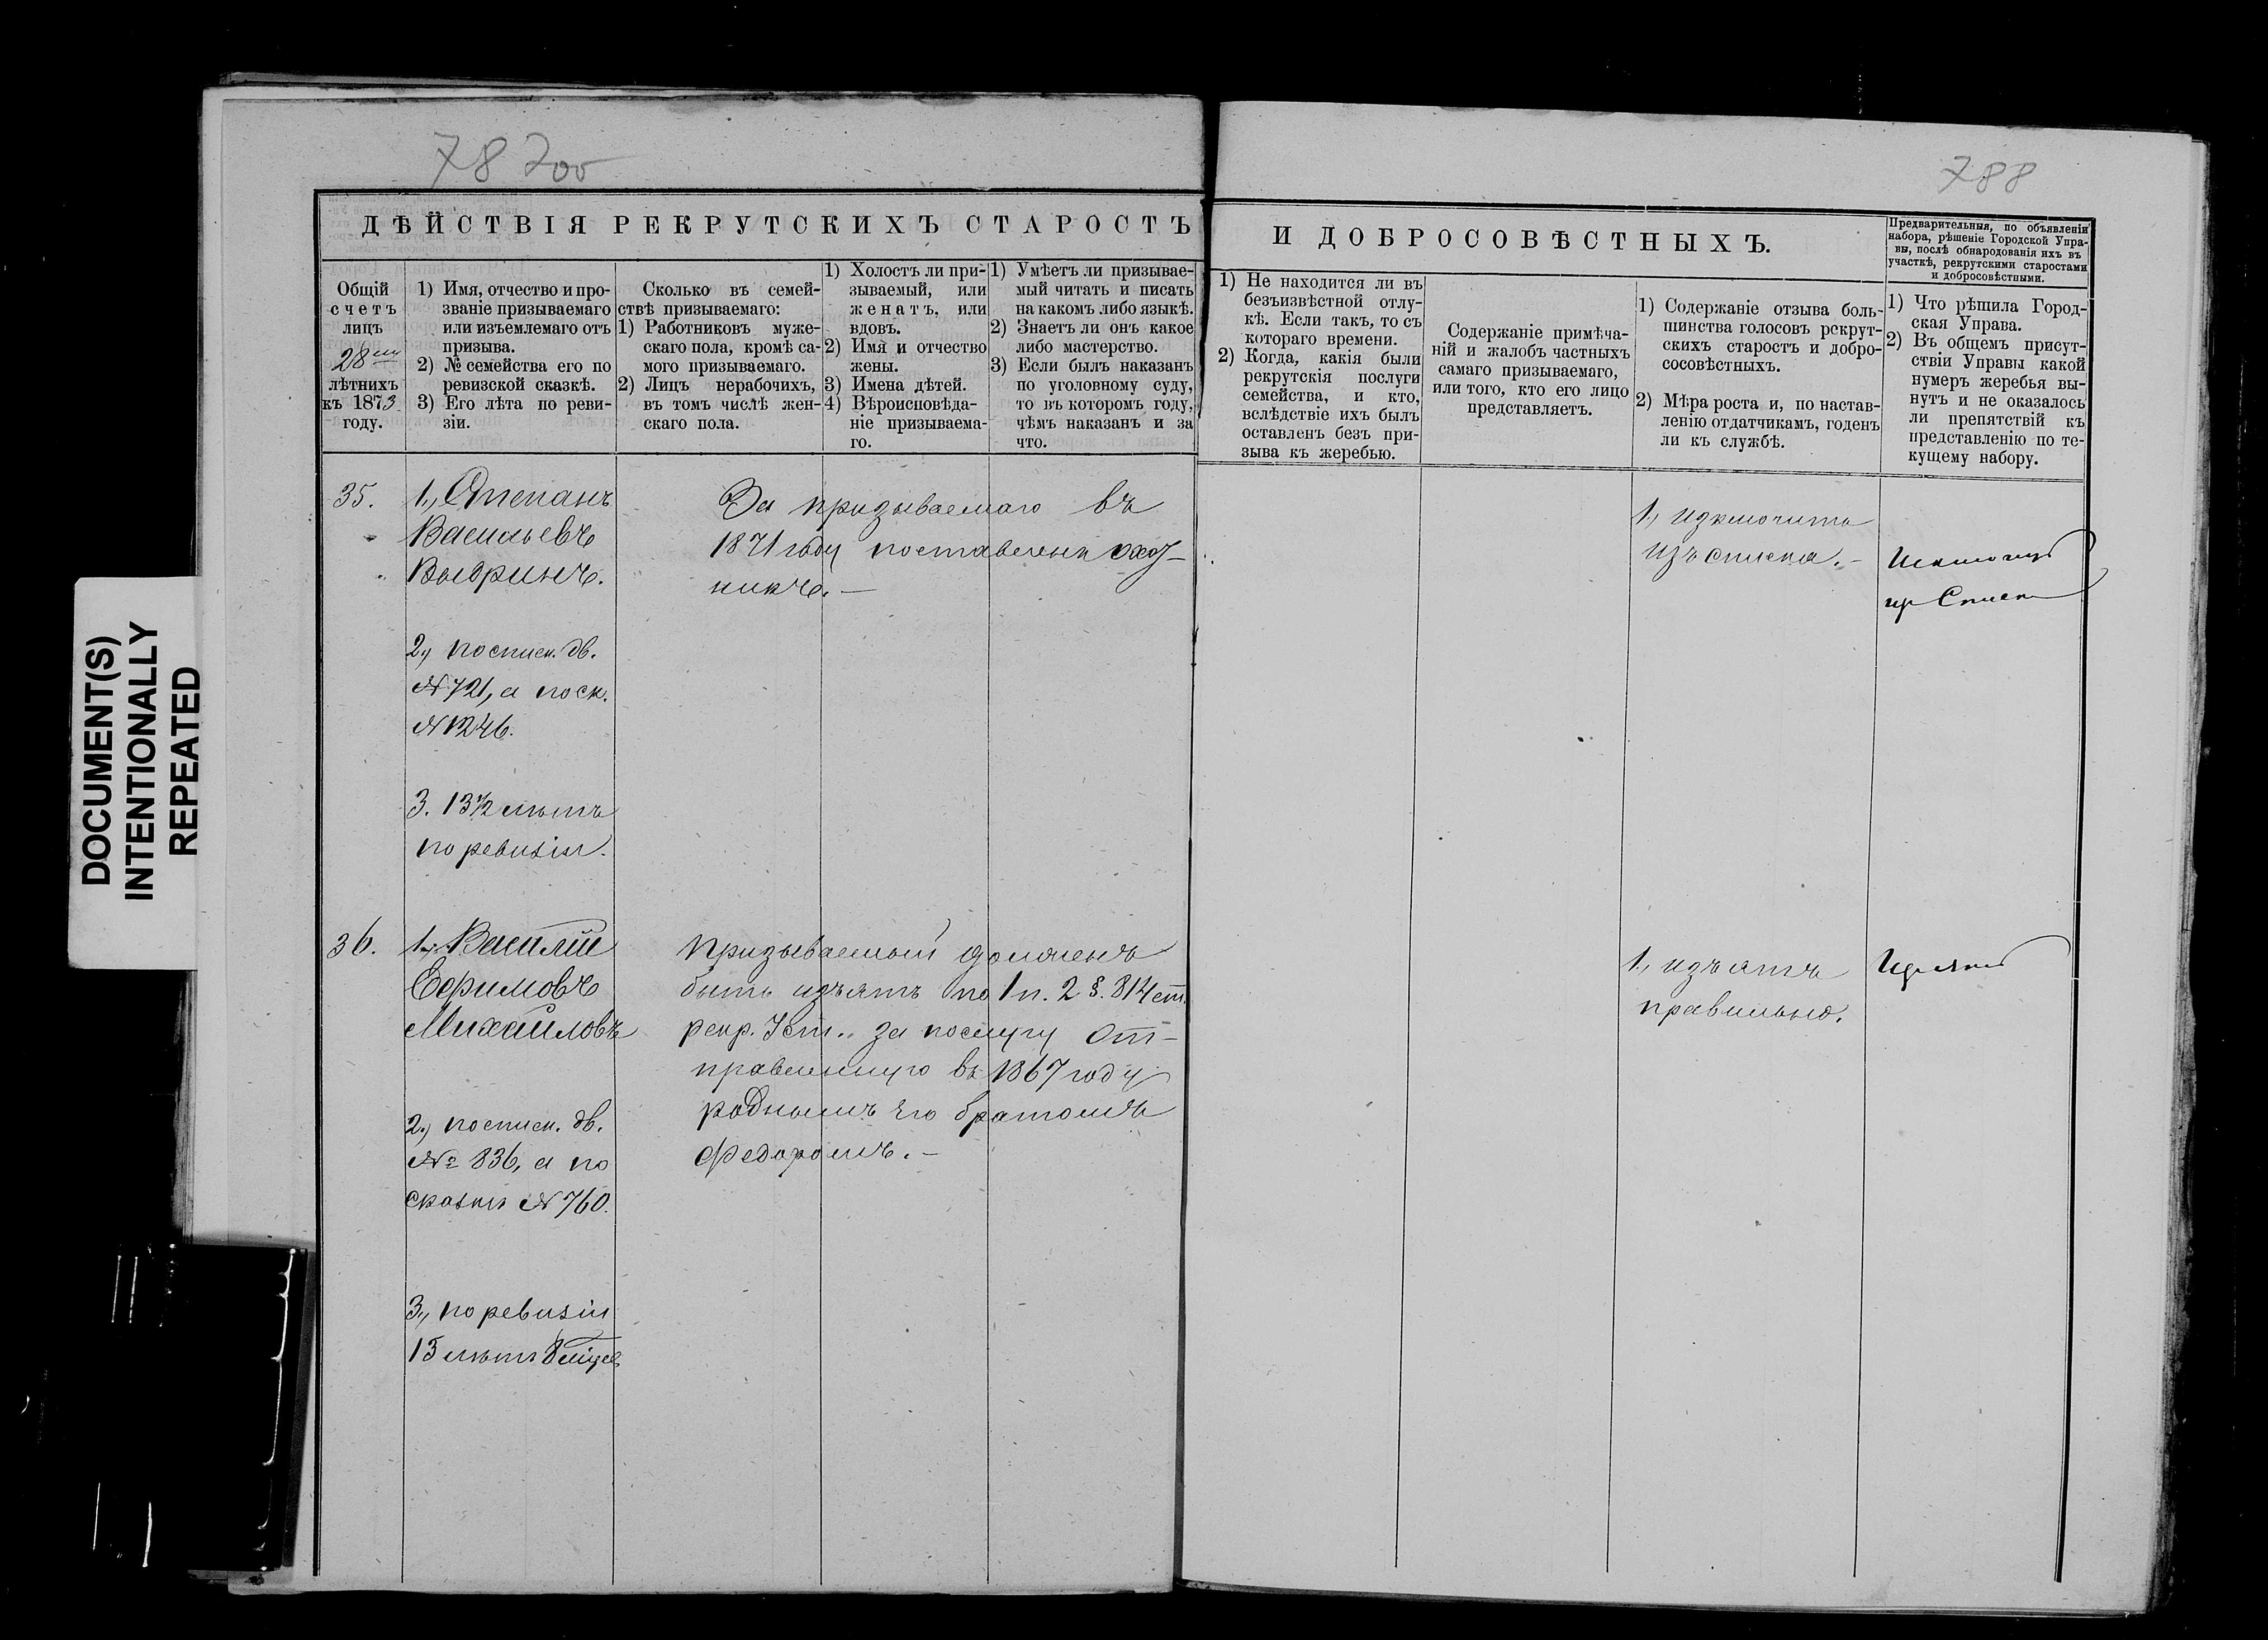 78 700
788
ДѢЙСТВІЯ РЕКРУТСКИХЪ СТАРОСТЪ
И ДОБРОСОВѢСТНЫХЪ.
Предварительныя, по объявленіи
набора, рѣшеніе Городской Упра-
вы, послѣ обнародованія ихъ въ
участкѣ, рекрутскими старостами
и добросовѣстными.
Общій
счетъ
лицъ
28ми
лѣтнихъ
къ 1873
году.
1) Имя, отчество и про-
званіе призываемаго
или изъемлемаго отъ
призыва.
2) № семейства его по
ревизской сказкѣ.
3) Его лѣта по реви-
зіи.
Сколько въ семей-
ствѣ призываемаго:
1) Работниковъ муже-
скаго пола, кромѣ са-
мого призываемаго.
2) Лицъ нерабочихъ,
въ томъ числѣ жен-
скаго пола.
1) Холостъ ли при-
зываемый, или
женатъ, или
вдовъ.
2) Имя и отчество
жены.
3) Имена дѣтей.
4) Вѣроисповѣда-
ніе призываема-
го.
1) Умѣетъ ли призывае-
мый читать и писать
на какомъ либо языкѣ.
2) Знаетъ ли онъ какое
либо мастерство.
3) Если былъ наказанъ
по уголовному суду,
то въ которомъ году,
чѣмъ наказанъ и за
что.
1) Не находится ли въ
безъизвѣстной отлу-
кѣ. Если такъ, то съ
котораго времени.
2) Когда, какія были
рекрутскія послуги
семейства, и кто,
вслѣдствіе ихъ былъ
оставленъ безъ при-
зыва къ жеребью.
Содержаніе примѣча-
ній и жалобъ частныхъ
самаго призываемаго,
или того, кто его лицо
представляетъ.
1) Содержаніе отзыва боль-
шинства голосовъ рекрут-
скихъ старостъ и добро-
сосовѣстныхъ.
2) Мѣра роста и, по настав-
ленію отдатчикамъ, годенъ
ли къ службѣ.
1) Что рѣшила Город-
ская Управа.
2) Въ общемъ присут-
ствіи Управы какой
нумеръ жеребья вы-
нутъ и не оказалось
ли препятствій къ
представленію по те-
кущему набору.
35.
1., Степанъ
Васильевъ
Выдринъ.
2., по списк. дв.
№ 721, а по ск.
№ 1246.
3. 13½ лѣтъ
по ревизіи.
За призываемаго въ
1871 году поставленъ охот-
никъ. —
1., изключить
изъ списка. —
Исключить
изъ Списка
36.
1., Василій
Ефимовъ
Михайловъ
2., по списк. дв.
№ 836, а по
сказкѣ № 760.
3., по ревизіи
13 лѣтъ 8 мѣцев
Призываемый долженъ
быть изъятъ по 1 п. 2 §. 814 ст.
рекр. Уст., за послугу от-
правленную въ 1867 году
роднымъ его братомъ
Федоромъ. —
1., изъятъ
правильно.
Изъять
DOCUMENT(S)
INTENTIONALLY
REPEATED